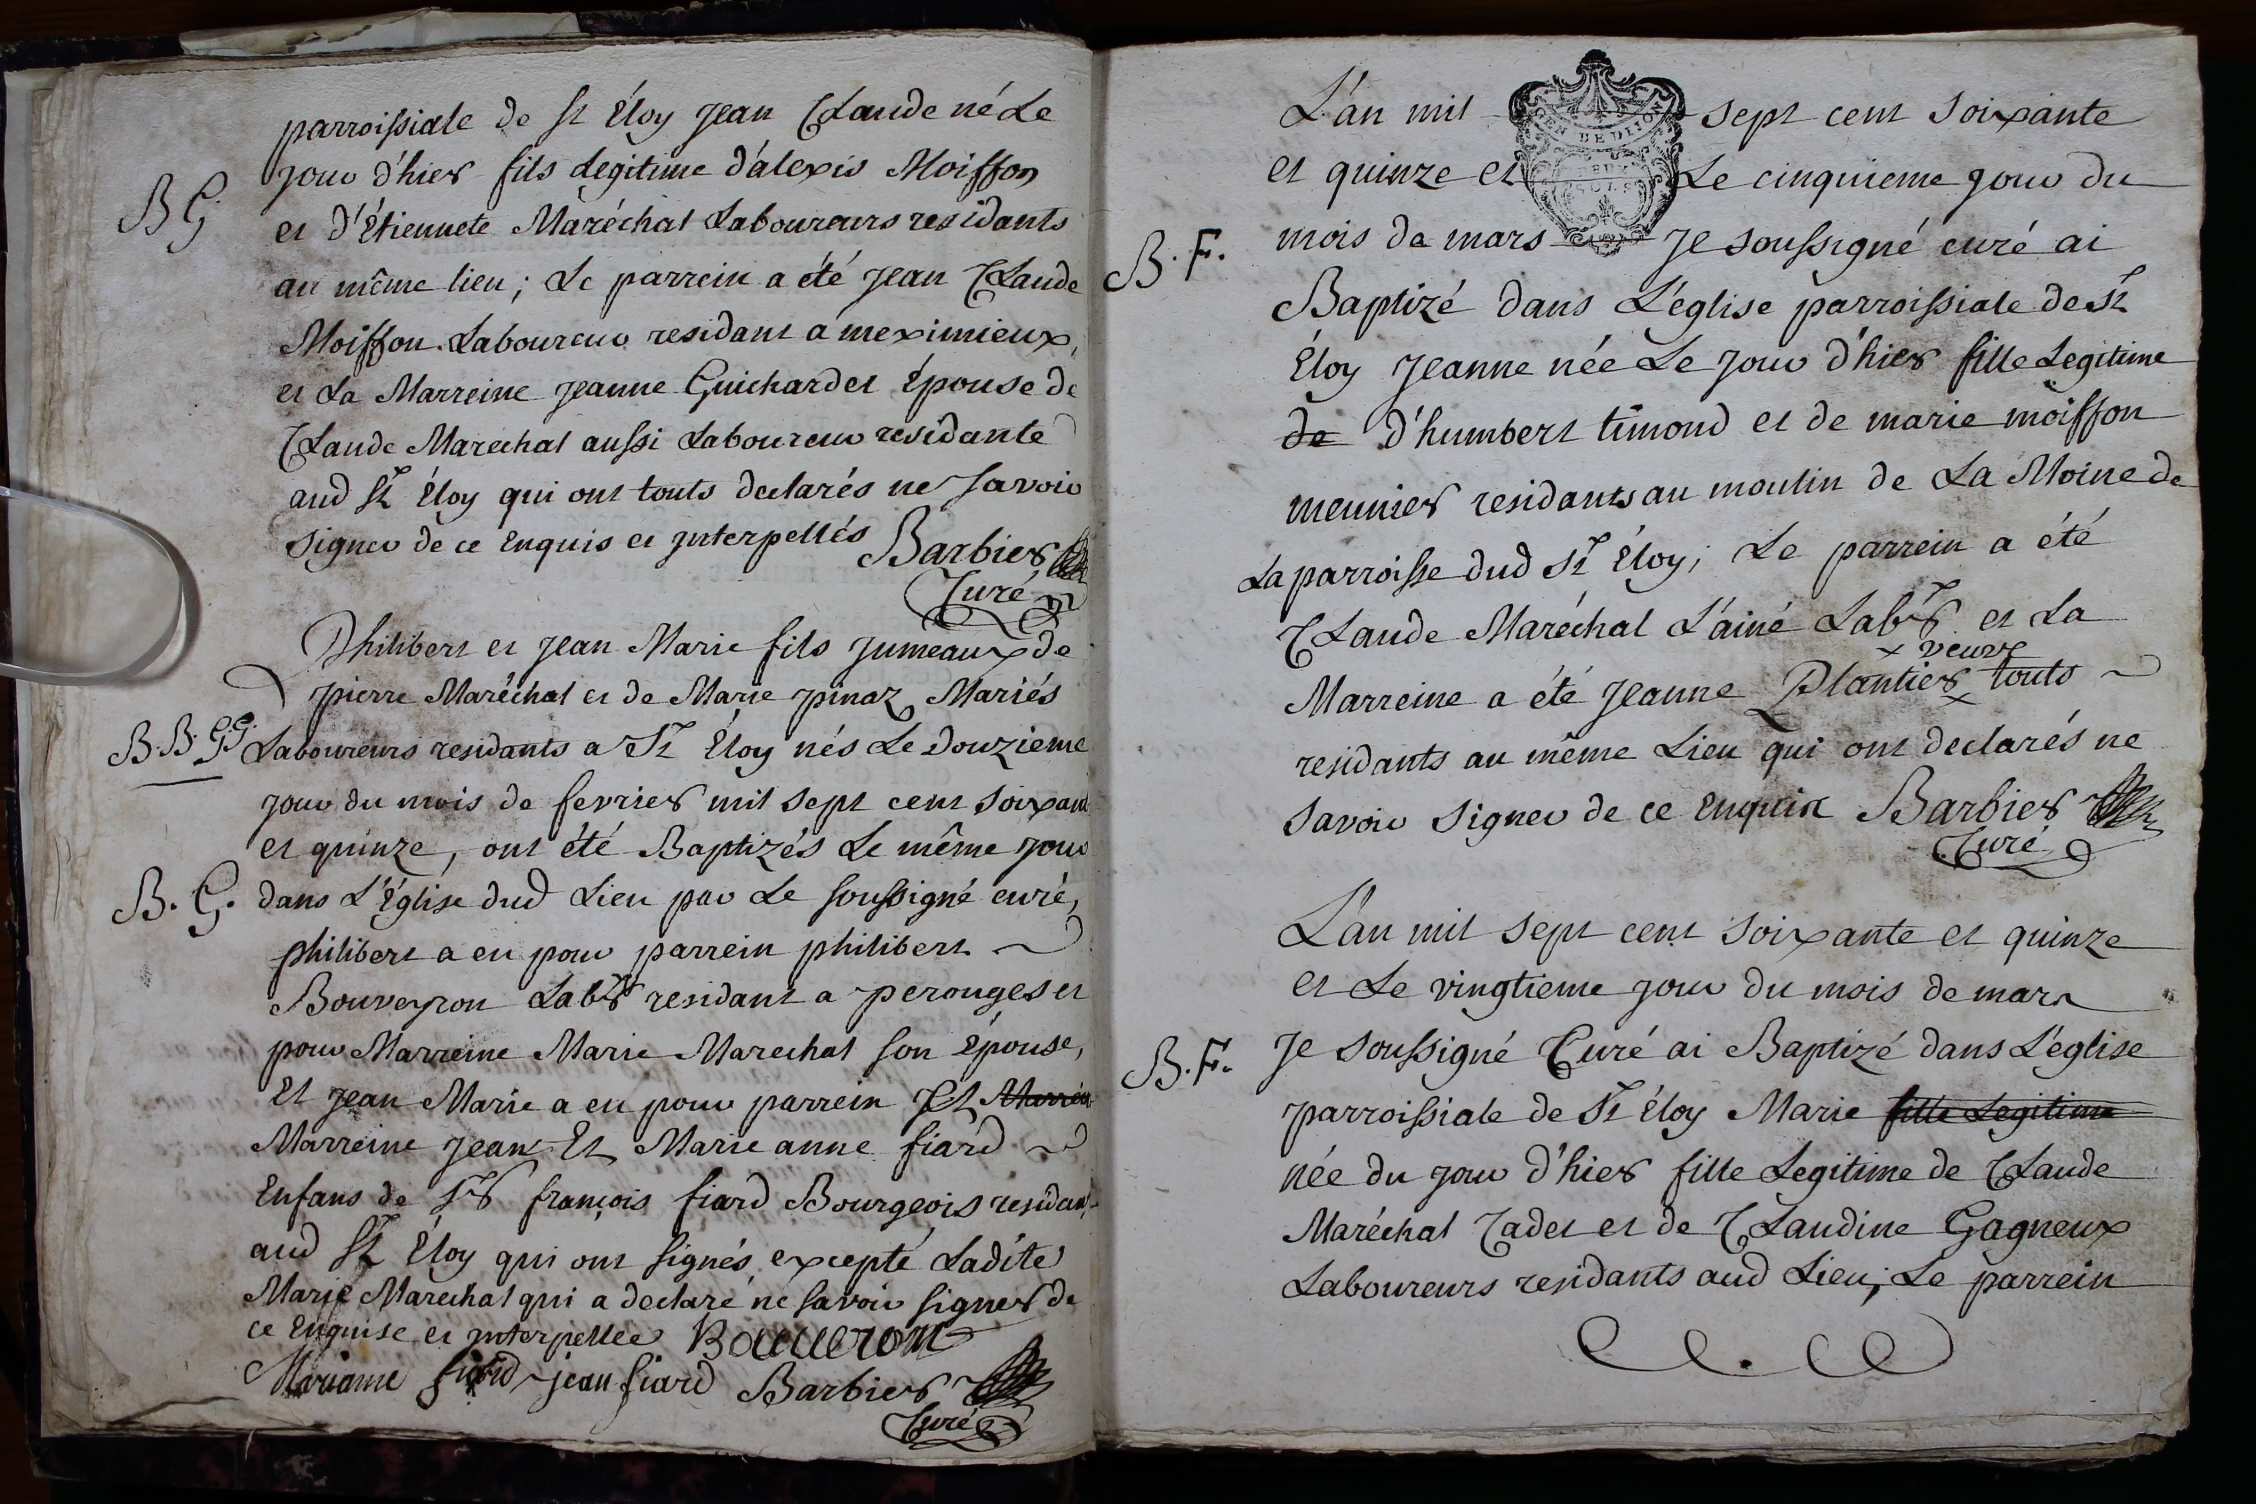 parroissiale de St Éloy Jean Claude né Le
jour d'hier fils Legitime d'alexis Moiffon
B G
et d'Étiennete Maréchal Laboureurs residants
au même lieu ; Le parrein a été Jean Claude
Moiffon Laboureur residant a meximieux,
et La Marreine Jeanne Guichardet Épouse de
Claude Marechal aussi Laboureur residante
aud St Éloy qui ont touts declarés ne savoir
signer de ce Enquis et jnterpellés Barbier
Curé
Philibert et Jean Marie fils jumeaux de
pierre Maréchal et de Marie pinaz Mariés
B.B. G.G. Laboureurs residants a St Éloy nés Le Douzieme
jour du mois de fevrier mil sept cent soixant
et quinze, ont été Baptizés Le même jour
B. G. dans L'Église dud Lieu par Le soussigné curé,
philibert a eu pour parrein philibert
Bouveyron Labr residant a perouges et
pour Marreine Marie Marechal son Épouse,
Et Jean Marie a eu pour parrein Et Marrein
Marreine Jean Et Marie anne fiard
Enfans de Sr françois fiard Bourgeois residant
aud St Éloy qui ont signés excepté Ladite
Marie Marechal qui a declaré ne savoir signer de
ce Enquise et jnterpellée Bouveron
Marianne fiard jean fiard Barbier
Curé
L'an mil sept cent soixante
GEN DE DIJON
et quinze et Le cinquieme jour du
mois de mars Je soussigné curé ai
B. F.
Baptizé dans L'église parroissiale de St
Éloy Jeanne née Le jour d'hier fille Legitime
de d'humbert timond et de marie moiffon
meunier residants au moulin de La Moine de
La parroisse dud St Éloy ; Le parrein a été
Claude Maréchal L'ainé Labr et La
x veuve
Marreine a été Jeanne Plantier x touts
residants au même Lieu qui ont declarés ne
savoir signer de ce Enquis Barbier
Curé
L'an mil sept cent soixante et quinze
et Le vingtieme jour du mois de mars
B. F. Je soussigné Curé ai Baptizé dans L'église
parroissiale de St Éloy Marie fille Legitime
née du jour d'hier fille Legitime de Claude
Maréchal Cadet et de Claudine Gagneux
Laboureurs residants aud Lieu ; Le parrein